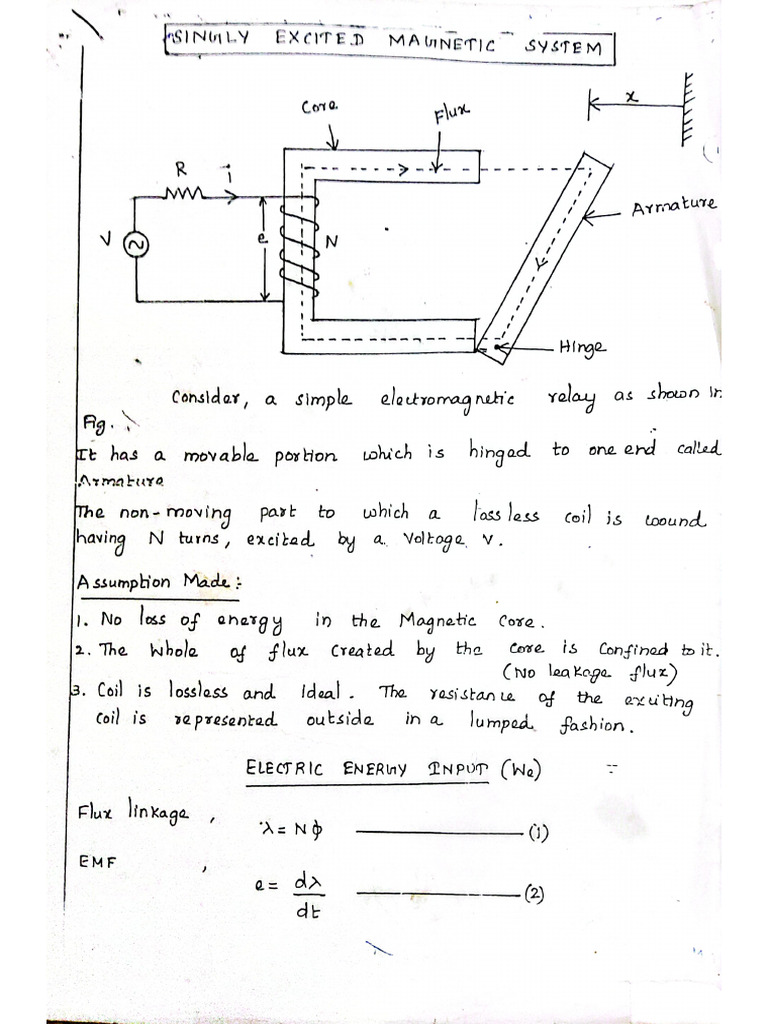 SINGLY EXCITED MAGNETIC SYSTEM
Core
Flux
x
R
i
V
e
N
Armature
Hinge
Consider, a simple electromagnetic relay as shown in
Fig.
It has a movable portion which is hinged to one end called
Armature
The non-moving part to which a lossless coil is wound
having N turns, excited by a Voltage V.
Assumption Made:-
1. No loss of energy in the Magnetic Core.
2. The Whole of flux Created by the core is Confined to it.
(No leakage flux)
3. Coil is lossless and Ideal. The resistance of the exciting
coil is represented outside in a lumped fashion.
ELECTRIC ENERGY INPUT (We)
Flux linkage,
λ = Nϕ ——— (1)
EMF,
e = dλ/dt ——— (2)